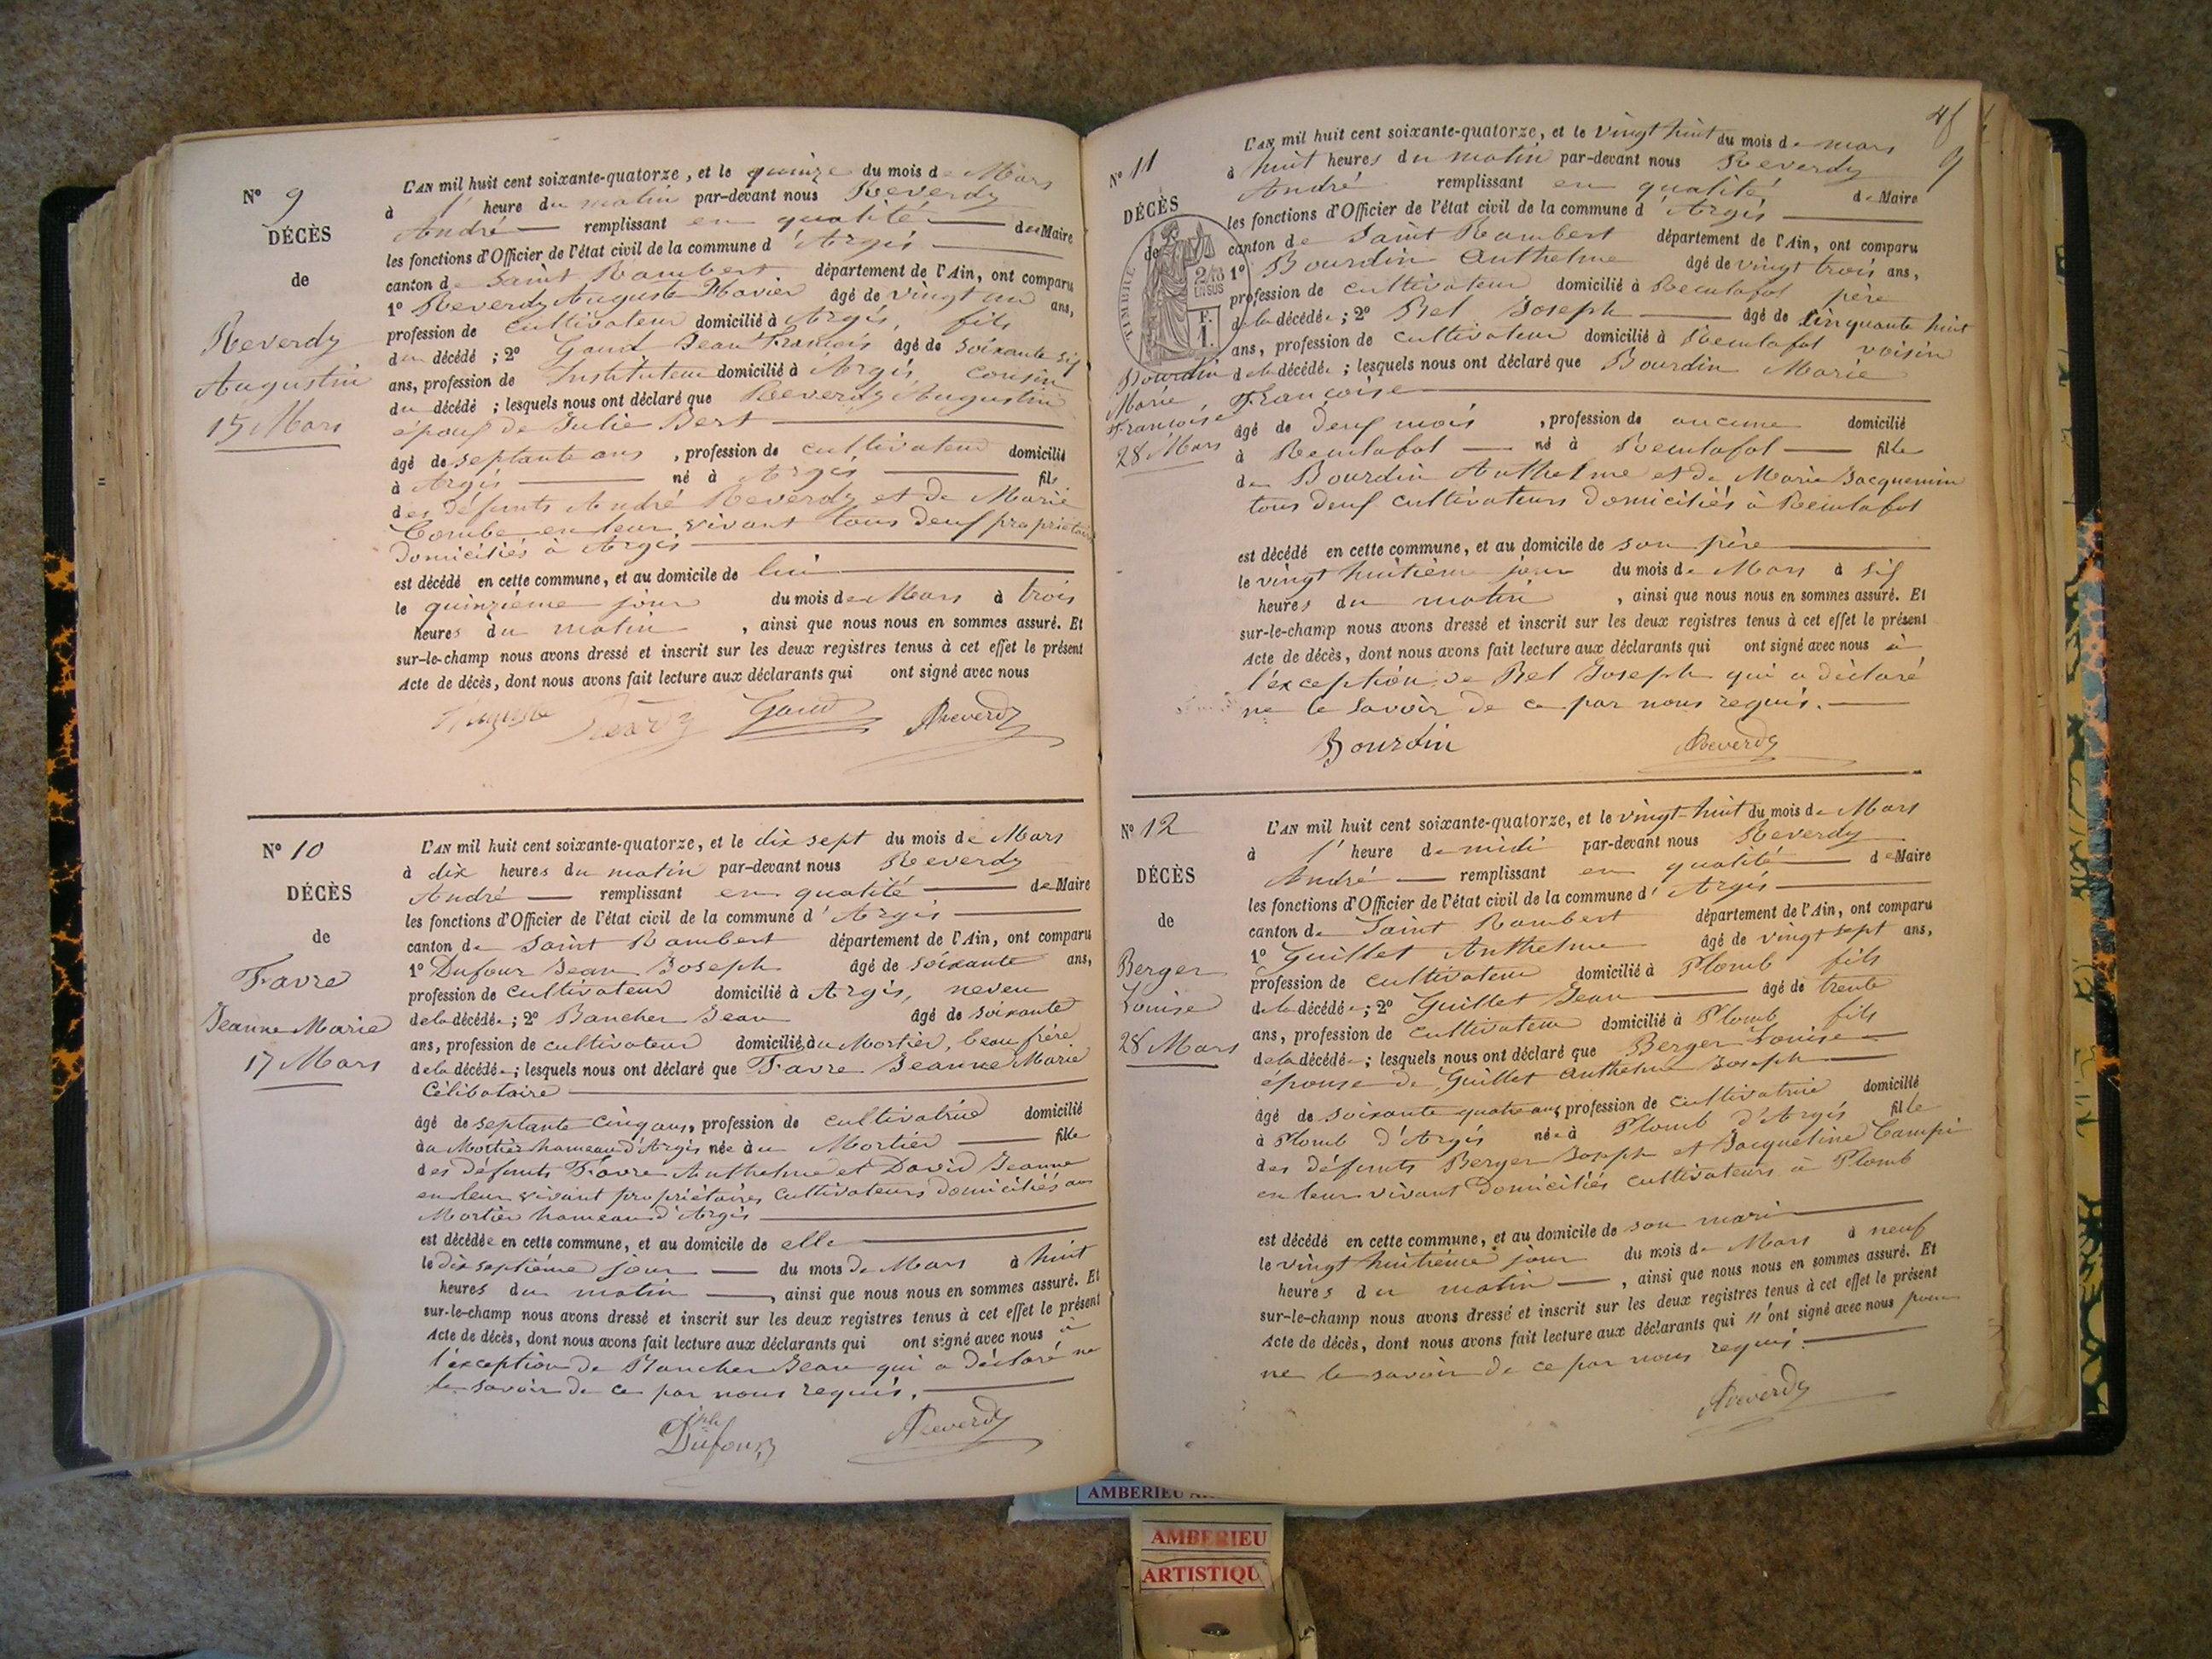 N° 9
DÉCÈS
de
Reverdy
Augustin
15 Mars
L'AN mil huit cent soixante-quatorze, et le quinze du mois de Mars
à 1' heure du matin par-devant nous Reverdy
André — remplissant en qualité — de Maire
les fonctions d'Officier de l'état civil de la commune d'Argis
canton de Saint Rambert département de l'Ain, ont comparu
1° Reverdy Auguste Flavier âgé de vingt un ans,
profession de cultivateur domicilié à Argis, fils
du décédé ; 2° Goud Jean François âgé de soixante six
ans, profession de Instituteur domicilié à Argis, cousin
du décédé ; lesquels nous ont déclaré que Reverdy Augustin
époux de Julie Bert
âgé de septante ans, profession de cultivateur domicilié
à Argis — né à Argis — fils
des défunts André Reverdy et de Marie
Combe en leur vivant tous deux propriétaires
domiciliés à Argis
est décédé en cette commune, et au domicile de lui
le quinzième jour du mois de Mars à trois
heures du matin, ainsi que nous nous en sommes assuré. Et
sur-le-champ nous avons dressé et inscrit sur les deux registres tenus à cet effet le présent
Acte de décès, dont nous avons fait lecture aux déclarants qui ont signé avec nous
Goud Reverdy
N° 10
DÉCÈS
de
Favre
Jeanne Marie
17 Mars
L'AN mil huit cent soixante-quatorze, et le dix sept du mois de Mars
à dix heures du matin par-devant nous Reverdy
André — remplissant en qualité — de Maire
les fonctions d'Officier de l'état civil de la commune d'Argis
canton de Saint Rambert département de l'Ain, ont comparu
1° Dufour Jean Joseph âgé de soixante ans,
profession de cultivateur domicilié à Argis, neveu
de la décédée ; 2° Bancher Jean âgé de soixante
ans, profession de cultivateur domicilié au Mortier, beau frère
de la décédée ; lesquels nous ont déclaré que Favre Jeanne Marie
Célibataire
âgé de septante cinq ans, profession de cultivatrice domicilié
au Mortier hameau d'Argis née au Mortier — fille
des défunts Favre Anthelme et David Jeanne
en leur vivant propriétaires cultivateurs domiciliés au
Mortier hameau d'Argis
est décédée en cette commune, et au domicile de elle
le dix septième jour — du mois de Mars à huit
heures du matin —, ainsi que nous nous en sommes assuré. Et
sur-le-champ nous avons dressé et inscrit sur les deux registres tenus à cet effet le présent
Acte de décès, dont nous avons fait lecture aux déclarants qui ont signé avec nous à
l'exception de Bancher Jean qui a déclaré ne
le savoir de ce par nous requis.
Dufour Reverdy
N° 11
DÉCÈS
de
TIMBRE
Bourdin
Marie
Françoise
28 Mars
L'AN mil huit cent soixante-quatorze, et le vingt huit du mois de mars
à huit heures du matin par-devant nous Reverdy
André remplissant en qualité de Maire
les fonctions d'Officier de l'état civil de la commune d'Argis
canton de Saint Rambert département de l'Ain, ont comparu
1° Bourdin Anthelme âgé de vingt trois ans,
profession de cultivateur domicilié à Reculafol père
de la décédée ; 2° Bel Joseph — âgé de cinquante huit
ans, profession de cultivateur domicilié à Reculafol voisin
de la décédée ; lesquels nous ont déclaré que Bourdin Marie
Françoise
âgé de deux mois, profession de aucune domicilié
à Reculafol — né à Reculafol — fille
de Bourdin Anthelme et de Marie Jacquemin
tous deux cultivateurs domiciliés à Reculafol
est décédé en cette commune, et au domicile de son père
le vingt huitième jour du mois de Mars à six
heures du matin, ainsi que nous nous en sommes assuré. Et
sur-le-champ nous avons dressé et inscrit sur les deux registres tenus à cet effet le présent
Acte de décès, dont nous avons fait lecture aux déclarants qui ont signé avec nous à
l'exception de Bel Joseph qui a déclaré
ne le savoir de ce par nous requis.
Bourdin Reverdy
N° 12
DÉCÈS
de
Berger
Louise
28 Mars
L'AN mil huit cent soixante-quatorze, et le vingt-huit du mois de Mars
à 1' heure de midi par-devant nous Reverdy
André — remplissant en qualité — de Maire
les fonctions d'Officier de l'état civil de la commune d'Argis
canton de Saint Rambert département de l'Ain, ont comparu
1° Guillet Anthelme âgé de vingt sept ans,
profession de cultivateur domicilié à Plomb fils
de la décédée ; 2° Guillet Jean — âgé de trente
ans, profession de cultivateur domicilié à Plomb fils
de la décédée ; lesquels nous ont déclaré que Berger Louise
épouse de Guillet Anthelme Joseph
âgé de soixante quatre ans, profession de cultivatrice domicilié
à Plomb d'Argis née à Plomb d'Argis fille
des défunts Berger Joseph et Jacqueline Campi
en leur vivant domiciliés cultivateurs à Plomb
est décédé en cette commune, et au domicile de son mari
le vingt huitième jour du mois de Mars à neuf
heures du matin —, ainsi que nous nous en sommes assuré. Et
sur-le-champ nous avons dressé et inscrit sur les deux registres tenus à cet effet le présent
Acte de décès, dont nous avons fait lecture aux déclarants qui n'ont signé avec nous pour
ne le savoir de ce par nous requis.
Reverdy
AMBERIEU
AMBERIEU
ARTISTIQU